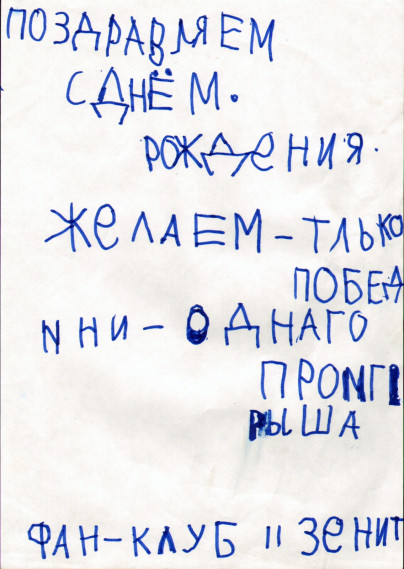 ПОЗДРАВЛЯЕМ
С ДНЁМ.
РОЖДЕНИЯ.
ЖЕЛАЕМ - ТЛЬКО
ПОБЕД
И НИ - ОДНАГО
ПРОИГ
РЫША
ФАН-КЛУБ "ЗЕНИТ